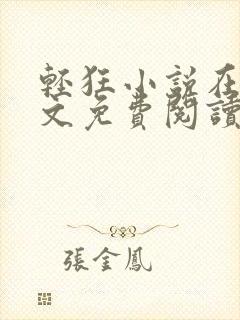 輕狂小說在
文免費閱讀
張金鳳